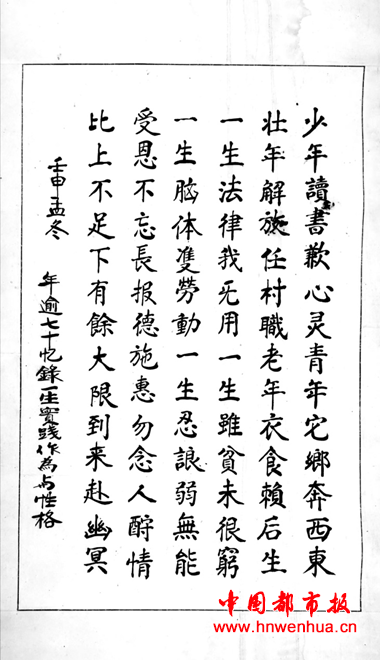 少年讀書歉心灵青年它鄉奔西東
壮年解放任村職老年衣食賴后生
一生法律我无用一生雖貧未很窮
一生脑体雙勞動一生忍誏弱無能
受恩不忘長报德施惠勿念人酧情
比上不足下有餘大限到来赴幽冥
壬申孟冬 年逾七十忆錄一生實践作為与性格
中国都市报
www.hnwenhua.cn